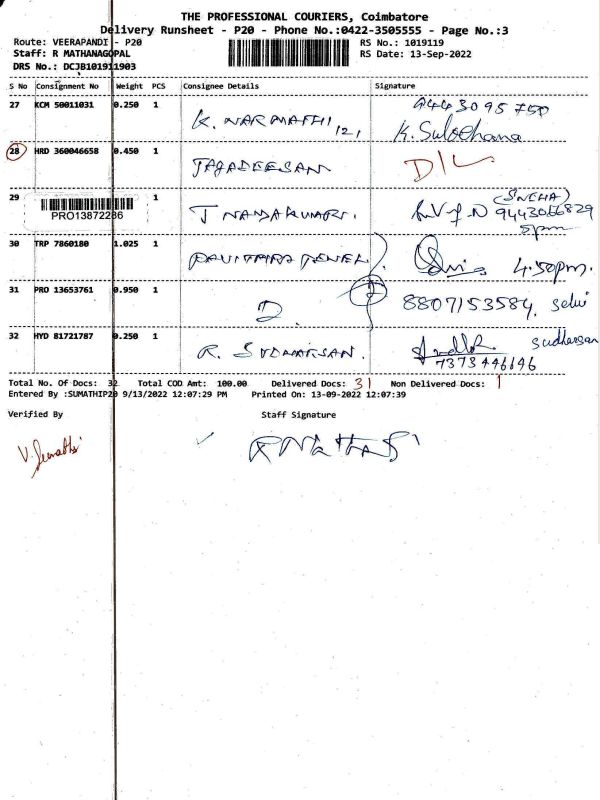 THE PROFESSIONAL COURIERS, Coimbatore
Delivery Runsheet - P20 - Phone No.:0422-3505555 - Page No.:3
Route: VEERAPANDI - P20
RS No.: 1019119
Staff: R MATHANAGOPAL
RS Date: 13-Sep-2022
DRS No.: DCJB101911903
S No Consignment No Weight PCS Consignee Details Signature
27 KCM 50011031 0.250 1 K. NARMATHI 121, 9443095750
K. Sulochana
28 HRD 360046658 0.450 1 JAGADEESAN D/L
29 PRO13872286 1 T NANDAKUMARI. (SNEHA)
5pm
30 TRP 7860180 1.025 1 4.50pm.
31 PRO 13653761 0.950 1 8807153584, selvi
32 HYD 81721787 0.250 1 R. SUDHARSAN. sudharsan
7373446146
Total No. Of Docs: 32 Total COD Amt: 100.00 Delivered Docs: 31 Non Delivered Docs: 1
Entered By :SUMATHIP20 9/13/2022 12:07:29 PM Printed On: 13-09-2022 12:07:39
Verified By Staff Signature